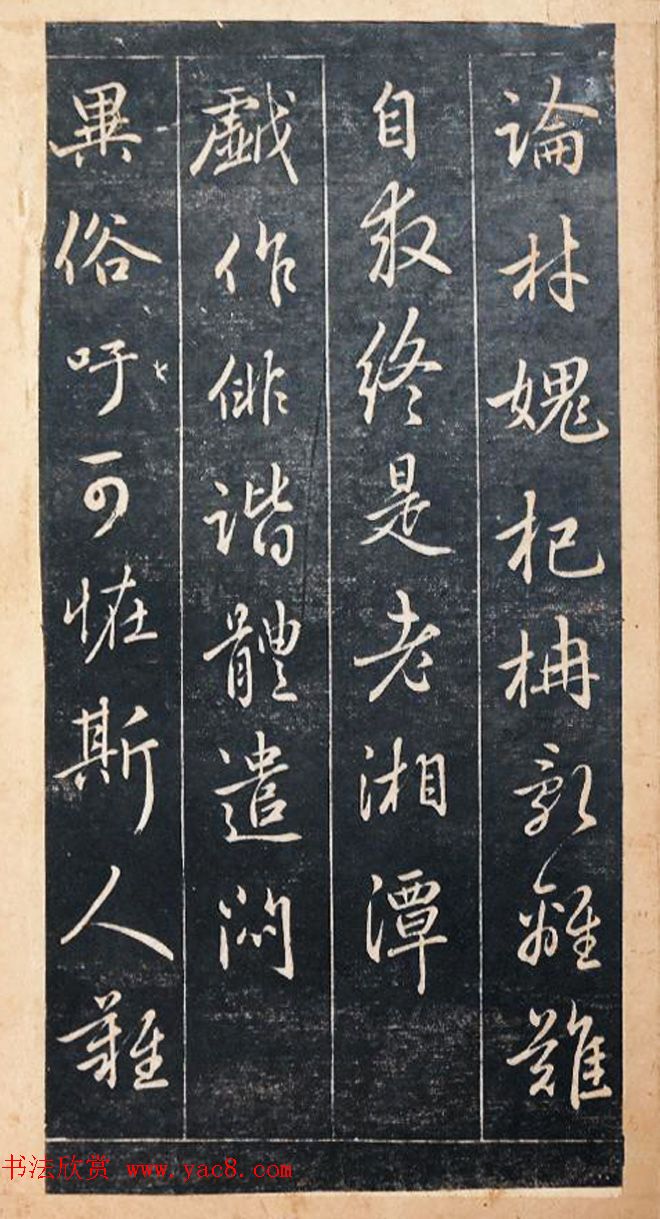 論材媿杞枏亂離難
自救終是老湘潭
戱作俳諧體遣悶
異俗吁可恠斯人難
书法欣赏 www.yac8.com